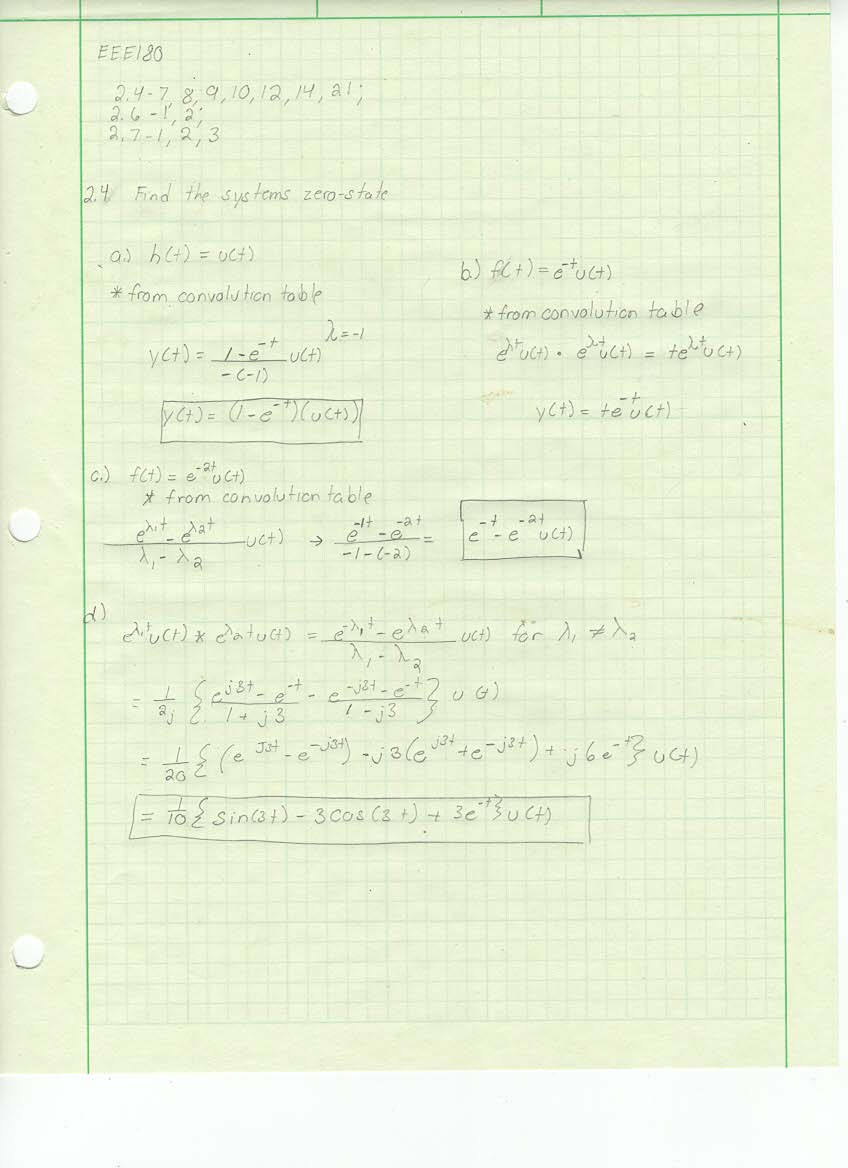 EEE180
2.4-7, 8, 9, 10, 12, 14, 21;
2.6-1, 2;
2.7-1, 2, 3
2.4 Find the systems zero-state
a.) h(t) = u(t)
* from convolution table
λ=-1
y(t) = (1-e^-t)/(-(-1)) u(t)
y(t) = (1-e^-t)(u(t))
b.) f(t) = e^-t u(t)
* from convolution table
e^λt u(t) · e^λt u(t) = te^λt u(t)
y(t) = te^-t u(t)
c.) f(t) = e^-2t u(t)
* from convolution table
(e^λ₁t - e^λ₂t)/(λ₁ - λ₂) u(t) → (e^-1t - e^-2t)/(-1-(-2)) = e^-t - e^-2t u(t)
d)
e^λ₁t u(t) * e^λ₂t u(t) = (e^-λ₁t - e^λ₂t)/(λ₁ - λ₂) u(t) for λ₁ ≠ λ₂
= 1/2j { (e^j3t - e^-t)/(1+j3) - (e^-j3t - e^-t)/(1-j3) } u(t)
= 1/20 { (e^j3t - e^-j3t) - j3(e^j3t + e^-j3t) + j6e^-t } u(t)
= 1/10 { sin(3t) - 3cos(3t) + 3e^-t } u(t)